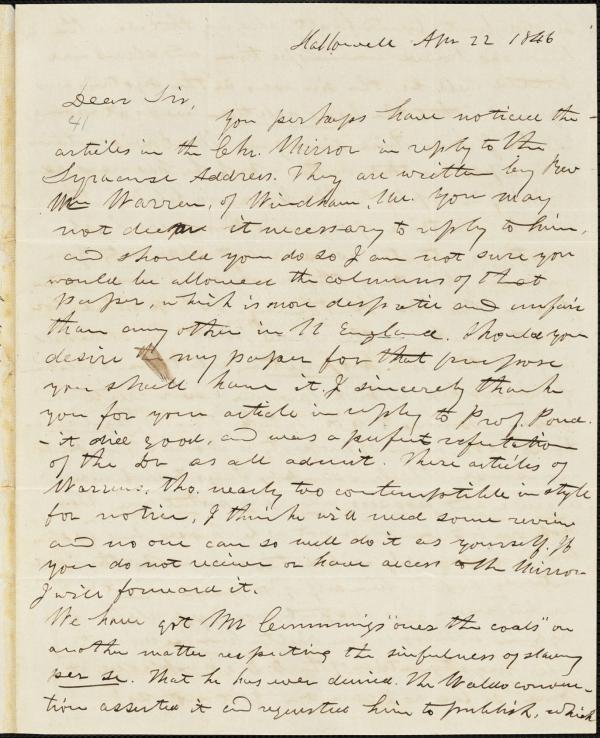 Hallowell Apr 22 1846
Dear Sir,
41
you perhaps have noticed the
articles in the Chr. Mirror in reply to the
Syracuse Address. They are written by Rev
Mr Warren, of Windham, Me. You may
not deem it necessary to reply to him,
and should you do so I am not sure you
would be allowed the columns of that
paper, which is more despotic and unfair
than any other in N England. Should you
desire my paper for that purpose
you shall have it. I sincerely thank
you for your article in reply to Prof. Pond.
- it did good, and was a perfect refutation
of the Dr as all admit. These articles of
Warrens, tho. nearly too contemptible in style
for notice, I think will need some review
and no one can so well do it as yourself. If
you do not receive or have access to the Mirror
I will forward it.
We have got Mr Cummings "over the coals" on
another matter respecting the sinfulness of slavery
per se. That he has ever denied. The Waldo conven-
tion asserted it and requested him to publish, which